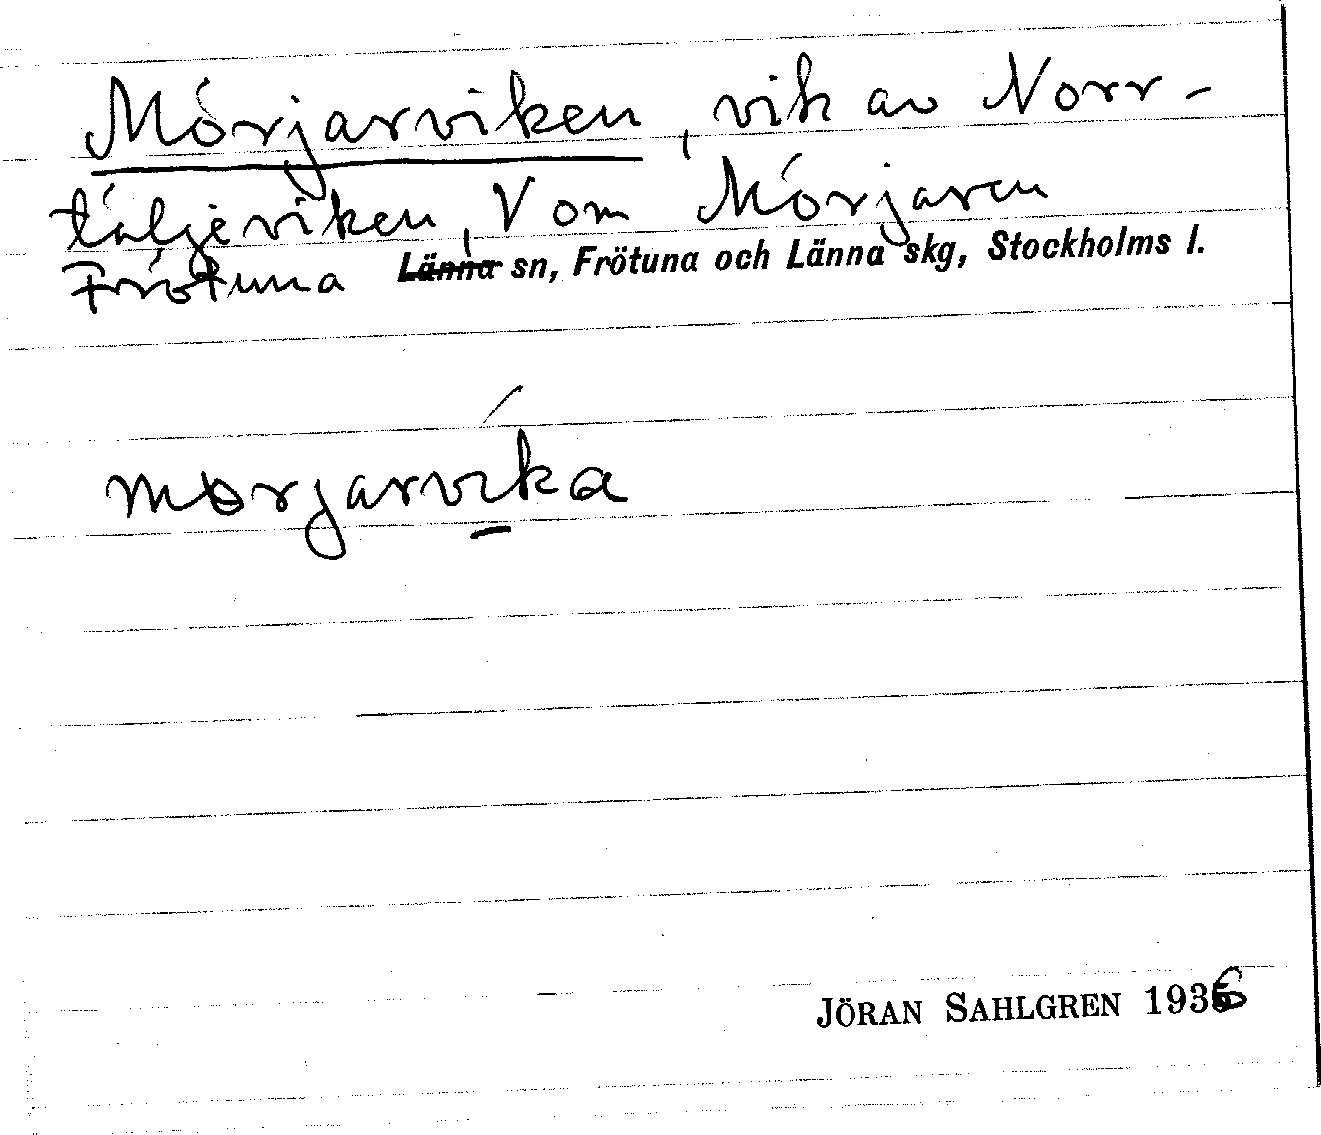 Mörjarviken, vik av Norr-
täljeviken, V om Mörjaren
Frötuna Länna sn, Frötuna och Länna skg, Stockholms l.
mørjarvika
JÖRAN SAHLGREN 1936